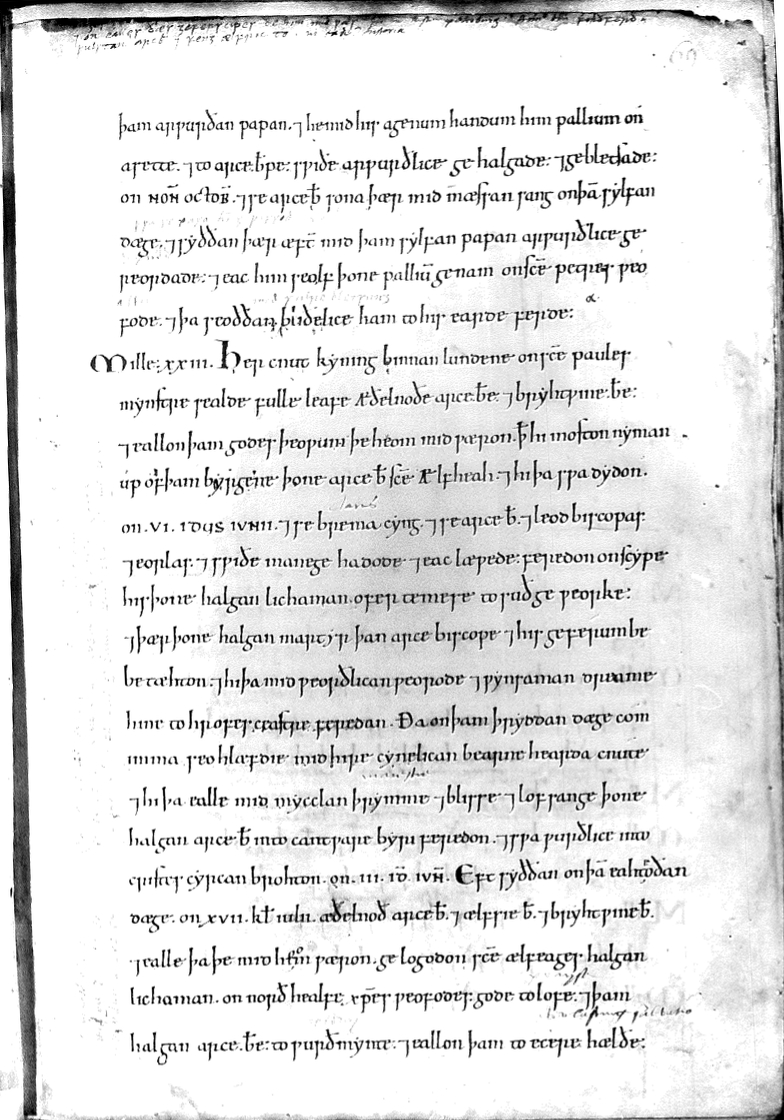 þam arwurðan papan. ⁊ he mid his agenum handum him pallium on
asette. ⁊ to arceb̄pe swiðe arwurðlice gehalgade: ⁊ gebletsade:
on noñ octob̄. ⁊ se arceb̄ sona þær mid mæssan sang on þā sylfan
dæge. ⁊ syððan þær æft̄ mid þam sylfan papan arwurðlice ge
reordade: ⁊ eac him seolf þone palliū genam on sc̄e petres weo
fode. ⁊ þa seoððan bliðelice ham to his earde ferde:
Mille.xxiii. Her cnut kyning binnan lundene on sc̄e paules
mynstre sealde fulle leafe Æðelnoðe arceb̄e. ⁊ bryhtwine b̄e:
⁊ eallon þam godes þeowum þe heom mid wæron. þ̄ hi moston nyman
up of þam byrgene þone arceb̄ sc̄e Ælfheah. ⁊ hi þa swa dydon.
on .vi. idus iunii. ⁊ se brema cyng. ⁊ se arceb̄. ⁊ leodbiscopas
⁊ eorlas. ⁊ swiðe manege hadode ⁊ eac læwede: feredon on scype
his þone halgan lichaman ofer temese to suðgeweorke:
⁊ þær þone halgan martyr þan arcebiscope ⁊ his geferum be
betæhton: ⁊ hi þa mid weorðlican weorode ⁊ wynsaman dreame
hine to hrofesceastre feredan. Ða on þam þryddan dæge com
imma seo hlæfdie mid hire cynelican bearne hearda cnute
⁊ hi þa ealle mid mycclan þrymme ⁊ blisse ⁊ lofsange þone
halgan arceb̄ into cantware byri feredon. ⁊ swa wurðlice into
cristes cyrcan brohton. on .iii. id̄ iun̄. Eft syððan on þā eahtoðan
dæge. on .xvii. kl̄ iulii. æðelnoð arceb̄. ⁊ ælfsie b̄. ⁊ bryhtwine b̄.
⁊ ealle þa þe mid heom wæron. gelogodon sc̄e ælfeages halgan
lichaman. on norðhealfe xp̄es weofodes. gode to lofe: ⁊ þam
halgan arceb̄e: to wurðmynte: ⁊ eallon þam to ecere hælðe: